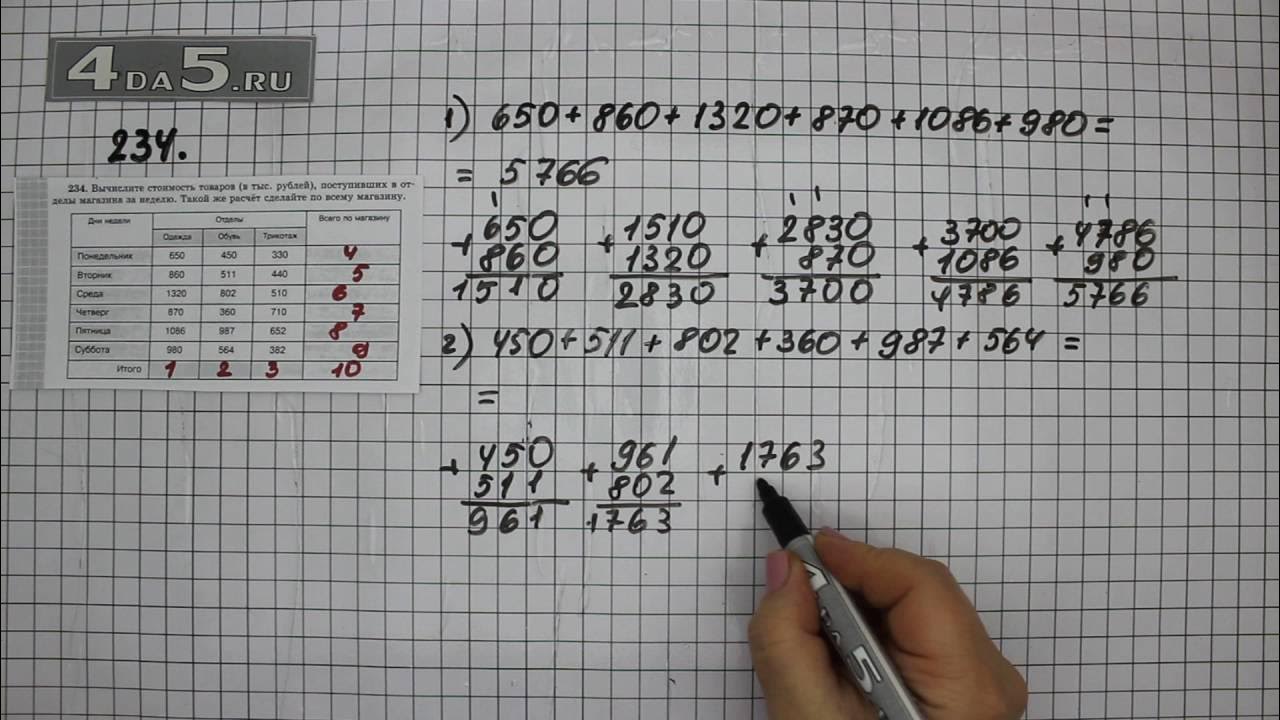 4DA5.RU
234.
234. Вычислите стоимость товаров (в тыс. рублей), поступивших в от-
делы магазина за неделю. Такой же расчёт сделайте по всему магазину.
Дни недели Отделы Всего по магазину
Одежда Обувь Трикотаж
Понедельник 650 450 330 4
Вторник 860 511 440 5
Среда 1320 802 510 6
Четверг 870 360 710 7
Пятница 1086 987 652 8
Суббота 980 564 382 9
Итого 1 2 3 10
1) 650+860+1320+870+1086+980=
= 5766
1 1 1 1 1
+650 +1510 +2830 +3700 +4786
860 1320 870 1086 980
1510 2830 3700 4786 5766
2) 450+511+802+360+987+564=
=
+450 +961 +1763
511 802
961 1763